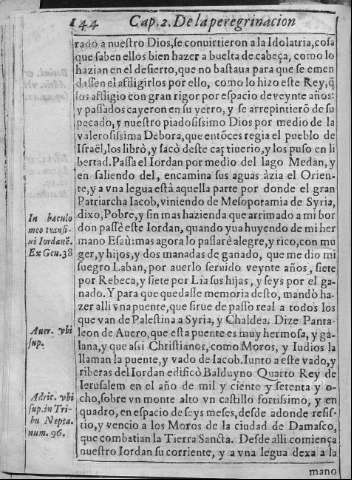 144 Cap. 2. De la peregrinacion
rado a nuestro Dios, se conuirtieron a la Idolatria, cosa
que saben ellos bien hazer a buelta de cabeça, como lo
hazian en el desierto, que no bastaua para que se emen
dassen el afligirlos por ello, como lo hizo este Rey, q̃
los affligio con gran rigor por espacio de veynte años:
y passados cayeron en su yerro, y se arrepintierō de su
pecado, y nuestro piadosissimo Dios por medio de la
valerosissima Debora, que entōces regia el pueblo de
Israël, los librò, y sacò deste captiuerio, y los puso en li
bertad. Passa el Iordan por medio del lago Medan, y
en saliendo del, encamina sus aguas àzia el Orien-
te, y a vna legua està aquella parte por donde el gran
Patriarcha Iacob, viniendo de Mesopotamia de Syria,
dixo, Pobre, y sin mas hazienda que arrimado a mi bor
don passè este Iordan, quando yua huyendo de mi her
mano Esaù: mas agora lo passarè alegre, y rico, con mu
ger, y hijos, y dos manadas de ganado, que me dio mi
suegro Laban, por auerlo seruido veynte años, siete
por Rebeca, y siete por Lia sus hijas, y seys por el ga-
nado. Y para que quedasse memoria desto, mandò ha-
zer alli vna puente, que sirue de passo real a todos los
que van de Palestina a Syria, y Chaldea. Dize Panta-
leon de Auero, que esta puente es muy hermosa, y ga-
lana, y que assi Christianos, como Moros, y Iudios la
llaman la puente, y vado de Iacob. Iunto a este vado, y
riberas del Iordan edificò Balduyno Quarto Rey de
Ierusalem en el año de mil y ciento y setenta y o-
cho, sobre vn monte alto vn castillo fortissimo, y en
quadro, en espacio de seys meses, desde adonde resis-
tio, y vencio a los Moros de la ciudad de Damasco,
que combatian la Tierra Sancta. Desde alli comiença
nuestro Iordan su corriente, y a vna legua dexa a la
mano
In baculo
meo transi-
ui Iordanē.
Ex Gen. 38
Auer. vbi
sup.
Adric. vbi
sup. in Tri-
bu Nepta.
num. 96.